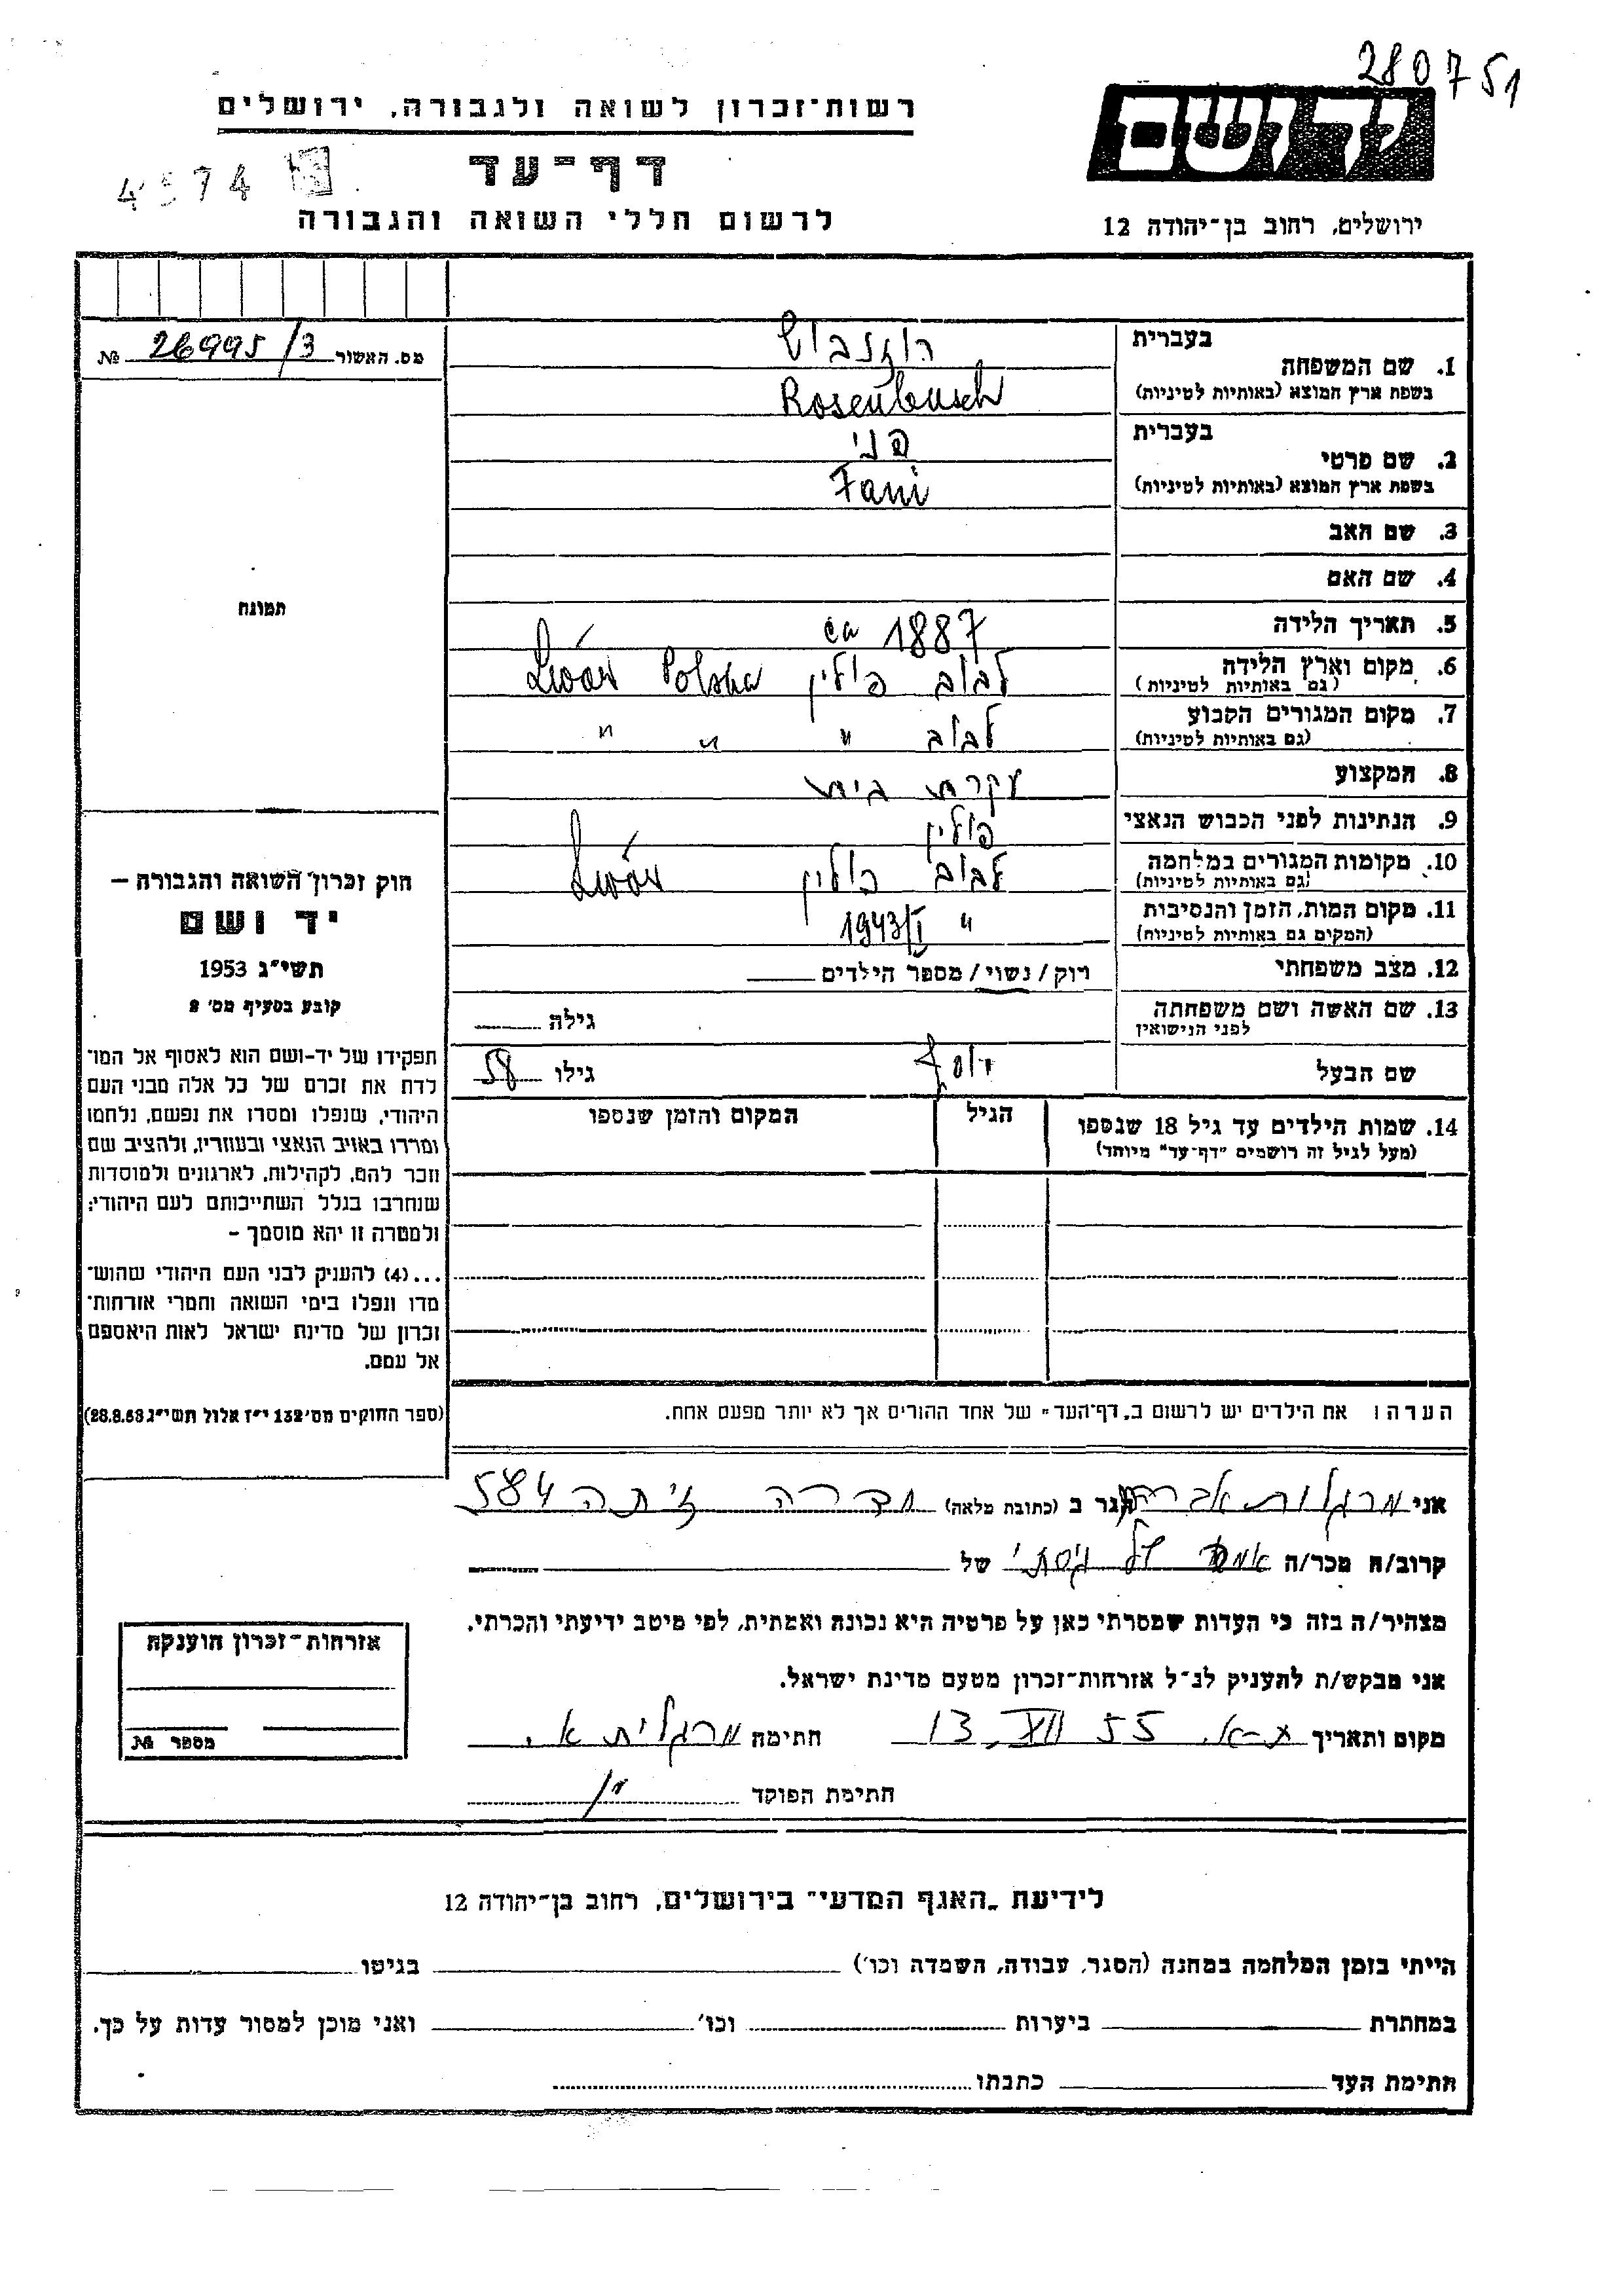 280751
רשות-זכרון לשואה ולגבורה, ירושלים
יד ושם
דף-עד
4574
לרשום חללי השואה והגבורה
ירושלים, רחוב בן-יהודה 12
מס. האשור 26995/3 №
בעברית
רוזנבוש
1. שם המשפחה
בשפת ארץ המוצא (באותיות לטיניות)
Rosenbusch
בעברית
פני
2. שם פרטי
בשפת ארץ המוצא (באותיות לטיניות)
Fani
3. שם האב
4. שם האם
5. תאריך הלידה ca 1887
6. מקום וארץ הלידה
(גם באותיות לטיניות)
לבוב פולין Lwów Polska
7. מקום המגורים הקבוע
(גם באותיות לטיניות)
לבוב " " "
8. המקצוע עקרת בית
9. הנתינות לפני הכבוש הנאצי פולין
10. מקומות המגורים במלחמה
(גם באותיות לטיניות)
לבוב פולין Lwów
11. מקום המות, הזמן והנסיבות
(המקום גם באותיות לטיניות)
" 1943/I
12. מצב משפחתי רוק/נשוי/מספר הילדים
13. שם האשה ושם משפחתה
לפני הנישואין
גילה
שם הבעל יוסף גילו 58
14. שמות הילדים עד גיל 18 שנספו
(מעל לגיל זה רושמים "דף-עד" מיוחד)
הגיל
המקום והזמן שנספו
הערה: את הילדים יש לרשום ב"דף-העד" של אחד ההורים אך לא יותר מפעם אחת.
תמונה
חוק זכרון השואה והגבורה –
יד ושם
תשי"ג 1953
קובע בסעיף מס' 2
תפקידו של יד-ושם הוא לאסוף אל המו-
לדת את זכרם של כל אלה מבני העם
היהודי, שנפלו ומסרו את נפשם, נלחמו
ומרדו באויב הנאצי ובעוזריו, ולהציב שם
וזכר להם, לקהילות, לארגונים ולמוסדות
שנחרבו בגלל השתייכותם לעם היהודי;
ולמטרה זו יהא מוסמך –
...(4) להעניק לבני העם היהודי שהוש-
מדו ונפלו בימי השואה והמרי אזרחות-
זכרון של מדינת ישראל לאות היאספם
אל עמם.
(ספר החוקים מס' 132 י"ז אלול תשי"ג 28.8.53)
אני מרגלית הגר ב (כתובת מלאה) חדרה 584
קרוב/ה מכר/ה של גיסתי של
מצהיר/ה בזה כי העדות שמסרתי כאן על פרטיה היא נכונה ואמתית, לפי מיטב ידיעתי והכרתי.
אני מבקש/ת להעניק לנ"ל אזרחות-זכרון מטעם מדינת ישראל.
מקום ותאריך ת-א. 13, XII 55 חתימה מרגלית א.
חתימת הפוקד
אזרחות-זכרון הוענקה
מספר №
לידיעת "האגף המדעי" בירושלים, רחוב בן-יהודה 12
הייתי בזמן המלחמה במחנה (הסגר, עבודה, השמדה וכו') בגיטו
במחתרת ביערות וכו' ואני מוכן למסור עדות על כך.
חתימת העד כתבתו